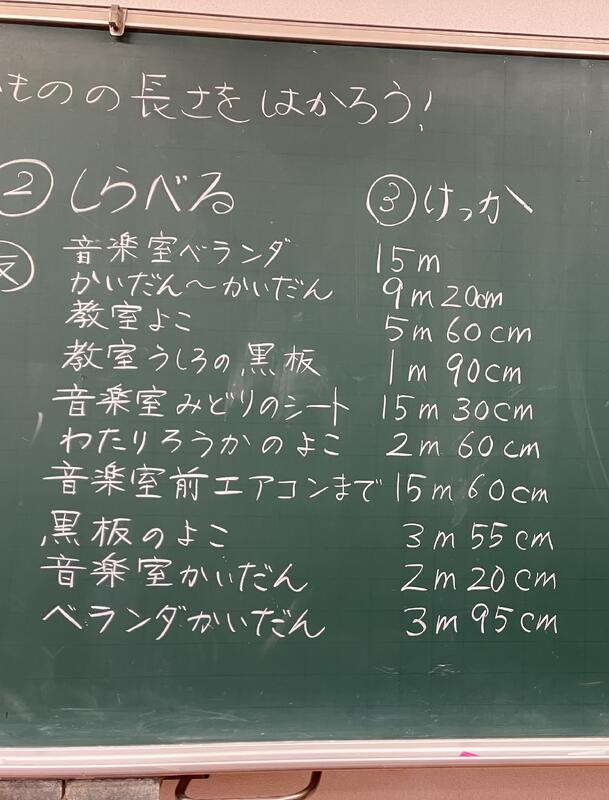 ものの長さをはかろう!
② しらべる ③ けっか
音楽室ベランダ 15m
かいだん〜かいだん 9m20cm
教室よこ 5m60cm
教室うしろの黒板 1m90cm
音楽室みどりのシート 15m30cm
わたりろうかのよこ 2m60cm
音楽室前エアコンまで 15m60cm
黒板のよこ 3m55cm
音楽室かいだん 2m20cm
ベランダかいだん 3m95cm